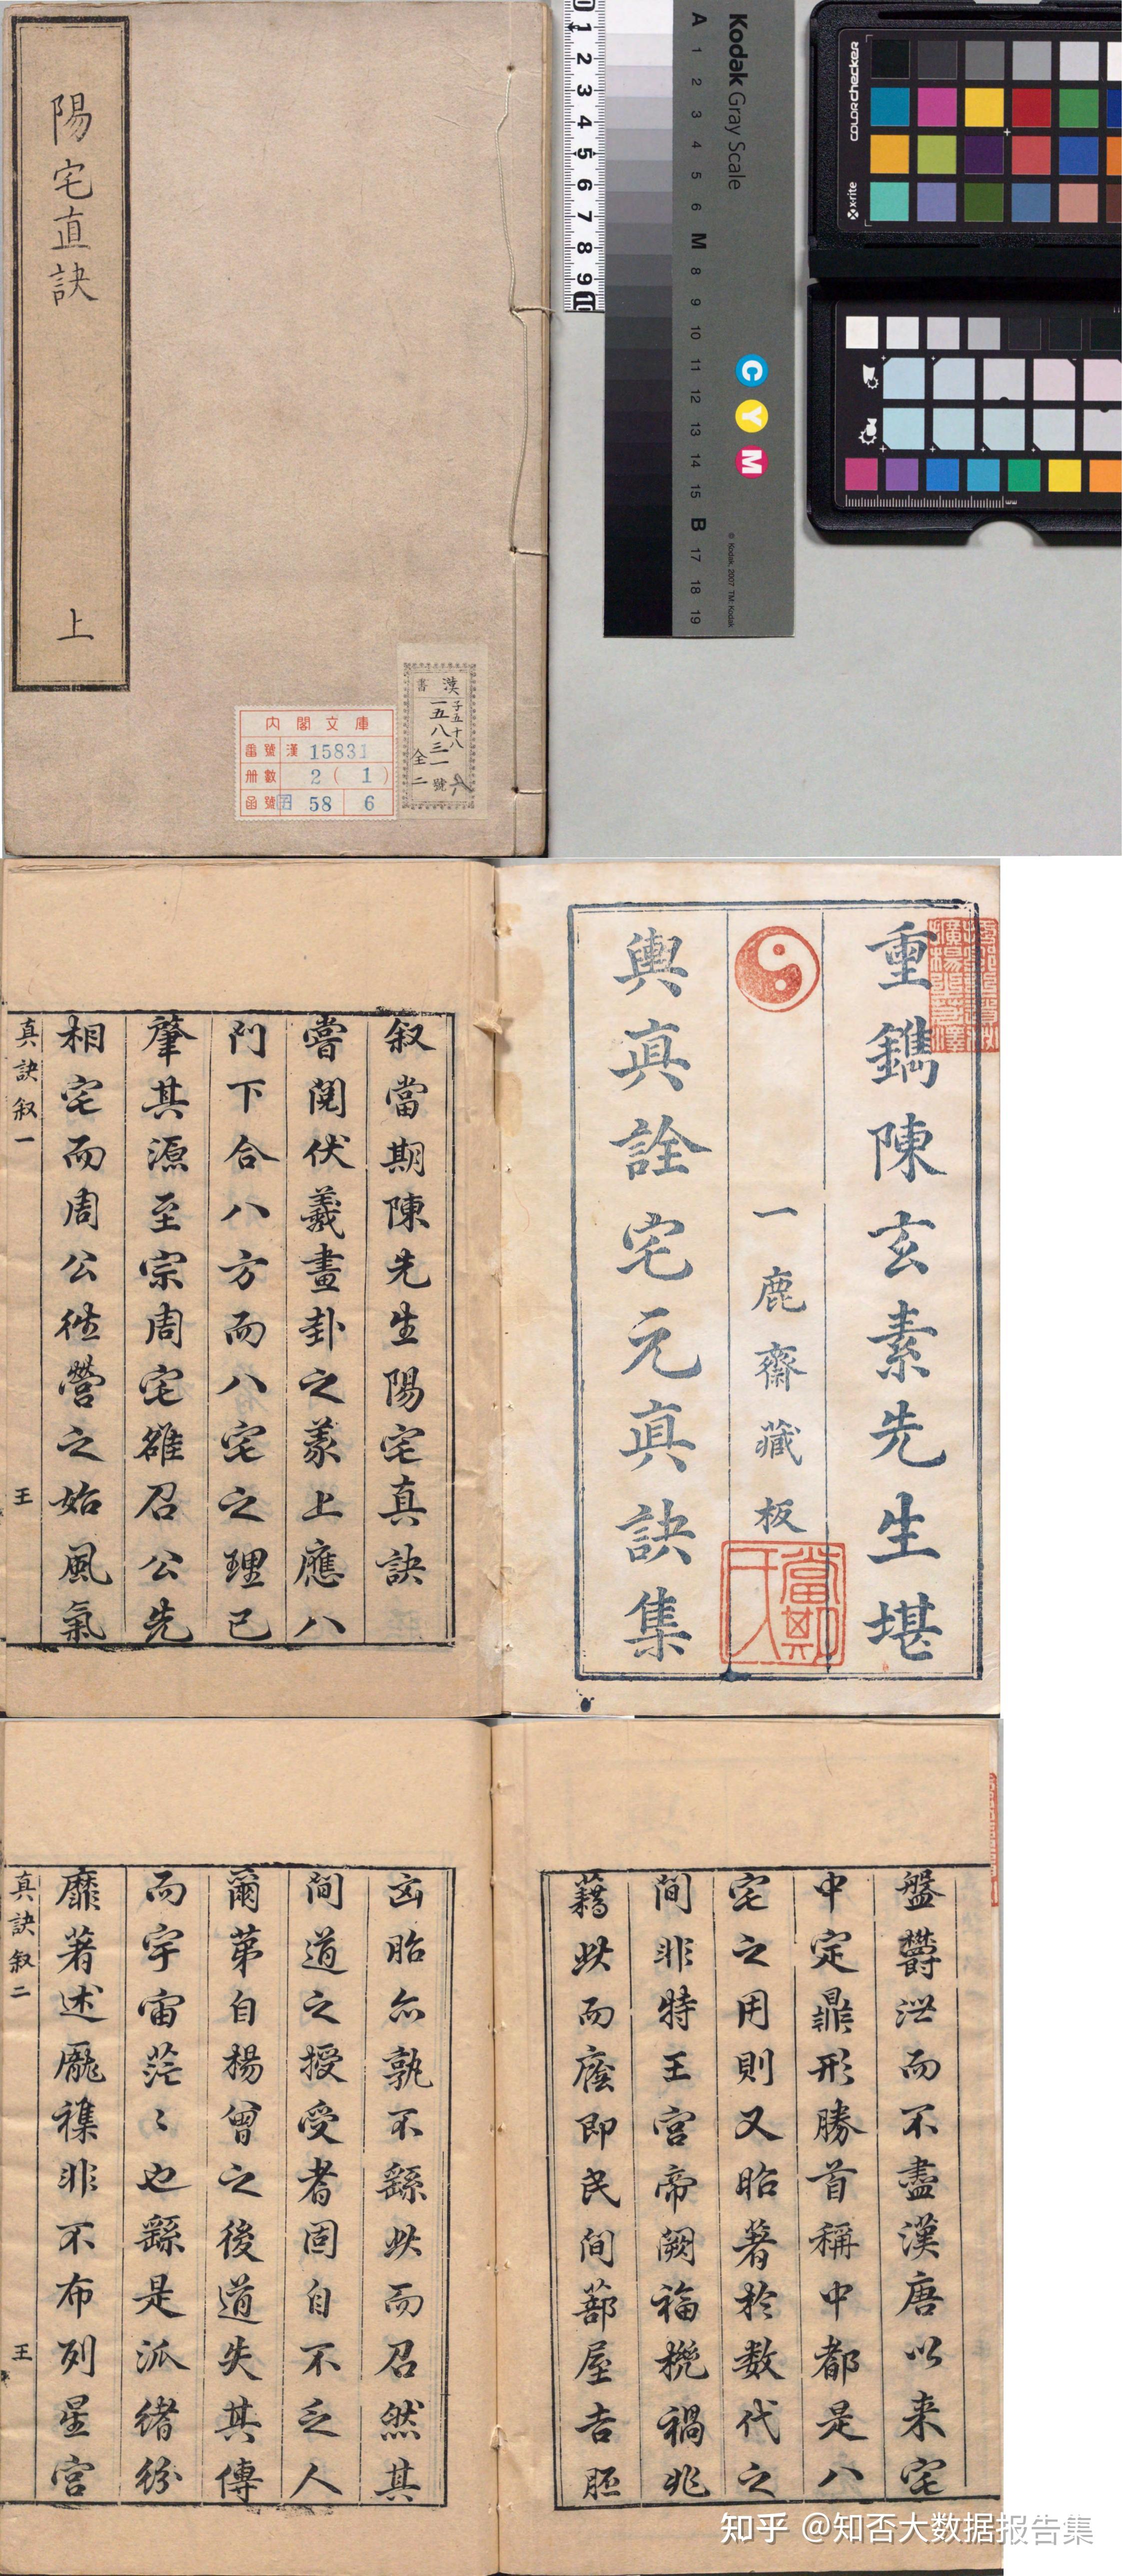 陽宅直訣
上
漢
書
子五十八
一五八三一
號
全二
六
內閣文庫
番號 漢 15831
册數 2 ( 1 )
函號 子 58 6
1 2 3 4 5 6 7 8 9 10
Kodak Gray Scale
A 1 2 3 4 5 6 M 8 9 10 11 12 13 14 15 B 17 18 19
C Y M
© Kodak, 2007 TM: Kodak
colorchecker
x-rite
mm
重鐫陳玄素先生堪
一鹿齋藏板
輿真詮宅元真訣集
當期
叙當期陳先生陽宅真訣
嘗閱伏羲畫卦之義上應八
門下合八方而八宅之理已
肇其源至宗周宅雒召公先
相宅而周公徃營之始風氣
真訣叙一
王
盤欝泄而不盡漢唐以来宅
中定鼎形勝首稱中都是八
宅之用則又昭著於数代之
間非特王宫帝闕福槐禍兆
藉此而廕即民間蔀屋吉胚
凶胎亦孰不繇此而召然其
間道之授受者固自不乏人
爾第自楊曾之後道失其傳
而宇宙茫〻也繇是派緒紛
靡著述龎襍非不布列星宫
真訣叙二
王
知乎 @知否大数据报告集